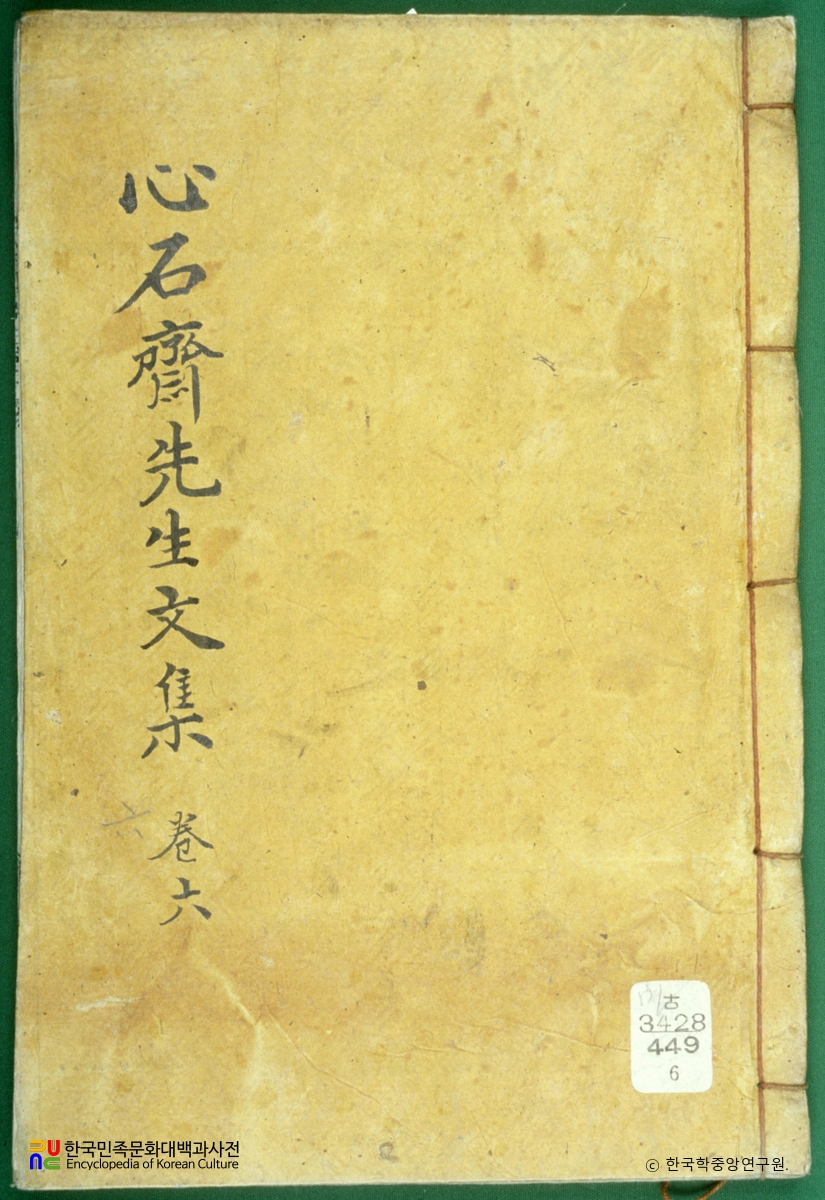 心石齋先生文集 卷六
六
古
3428
449
6
한국민족문화대백과사전
Encyclopedia of Korean Culture
© 한국학중앙연구원.